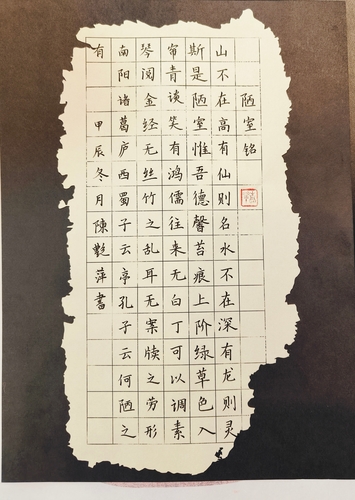 陋室铭
山不在高有仙则名水不在深有龙则灵
斯是陋室惟吾德馨苔痕上阶绿草色入
帘青谈笑有鸿儒往来无白丁可以调素
琴阅金经无丝竹之乱耳无案牍之劳形
南阳诸葛庐西蜀子云亭孔子云何陋之
有 甲辰冬月陳艷萍書